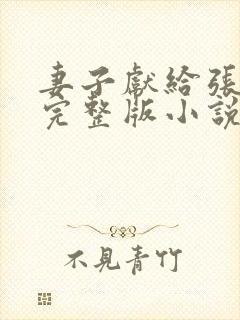 妻子獻給張
完整版小說
不見青竹